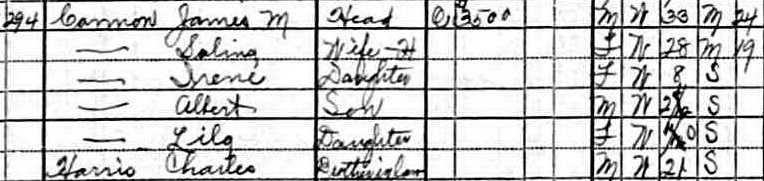 294 Cannon James M Head O 3500 M W 33 M 24
— Salina Wife-H F W 28 M 19
— Irene Daughter F W 8 S
— Albert Son M W S
— Lila Daughter F W S
Harris Charles Brotherinlaw M W 21 S